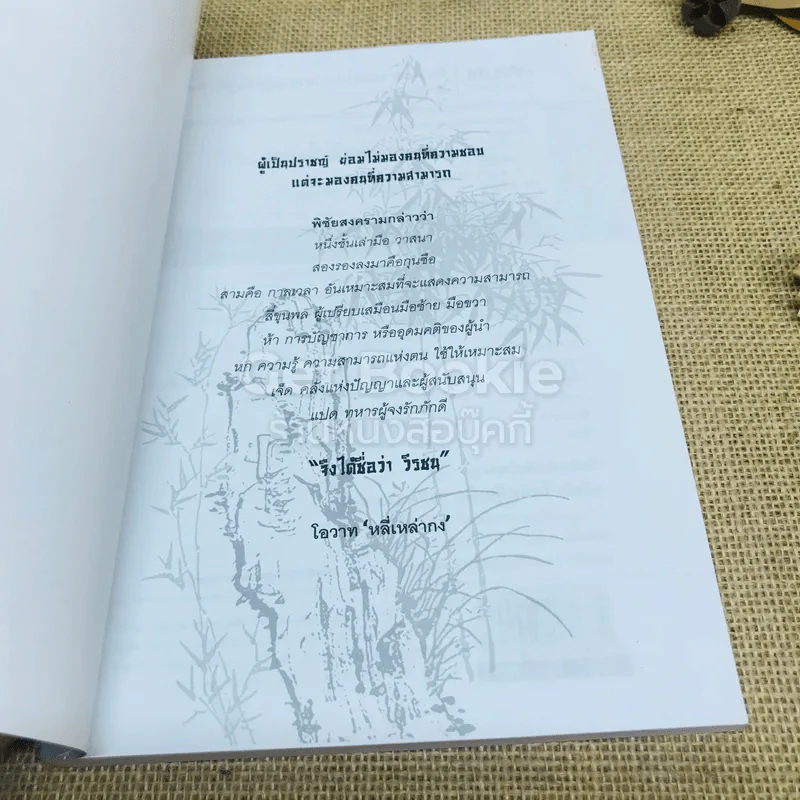 ผู้เป็นปราชญ์ ย่อมไม่มองคนที่ความชอบ
แต่จะมองคนที่ความสามารถ
พิชัยสงครามกล่าวว่า
หนึ่งชั้นเล่ามือ วาสนา
สองรองลงมาคือกุนซือ
สามคือ กาลเวลา อันเหมาะสมที่จะแสดงความสามารถ
สี่ขุนพล ผู้เปรียบเสมือนมือซ้าย มือขวา
ห้า การบัญชาการ หรืออุดมคติของผู้นำ
หก ความรู้ ความสามารถแห่งตน ใช้ให้เหมาะสม
เจ็ด คลังแห่งปัญญาและผู้สนับสนุน
แปด ทหารผู้จงรักภักดี
"จึงได้ชื่อว่า วีรชน"
โอวาท 'หลี่เหล่ากง'